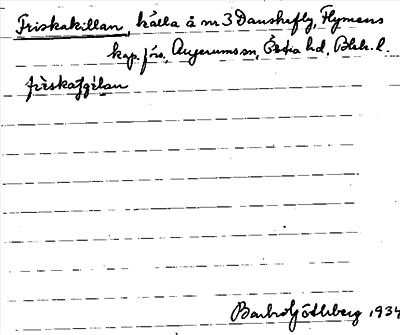 Friskakillan, källa å nr 3 Danskafly, Flymens
kap. förs. Augerums sn, Östra hd, Blek. l.
friskaɟɟélan
Barbro Göthberg 1934